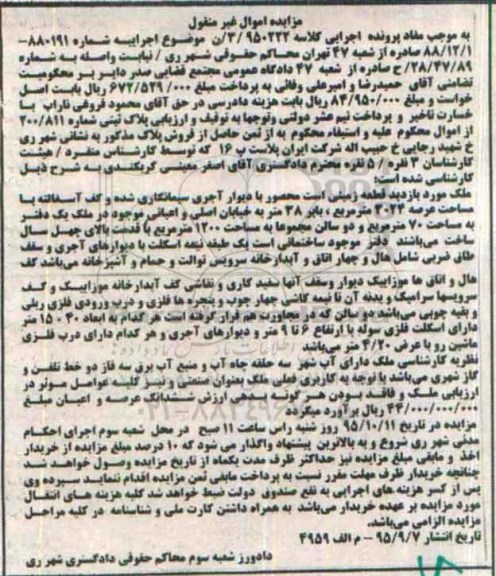 مزایده اموال غیر منقول
به موجب مفاد پرونده اجرایی کلاسه ۹۵۰۲۲۲/۳/ن موضوع اجراییه شماره ۸۸۰۱۹۱-
۸۸/۱۲/۱ صادره از شعبه ۴۷ تهران محاکم حقوقی شهر ری / نیابت واصله به شماره
۲۸/۴۷/۸۹/ح صادره از شعبه ۴۷ دادگاه عمومی مجتمع قضایی صدر دایر بر محکومیت
تضامنی آقای حمیدرضا و امیرعلی وفائی به پرداخت مبلغ ۶۷۲/۵۲۹/۰۰۰ ریال بابت اصل
خواسته و مبلغ ۸۴/۹۵۰/۰۰۰ ریال بابت هزینه دادرسی در حق آقای محمود فروغی ناراب با
خسارت تاخیر و پرداخت نیم عشر دولتی وتوجها به توقیف و ارزیابی پلاک ثبتی شماره ۲۰۰/۸۱۱
از اموال محکوم علیه و استیفاء محکوم به از ثمن حاصل از فروش پلاک مذکور به نشانی شهر ری
خ شهید رجایی خ حبیب اله شرکت ایران پلاست پ ۱۶ که توسط کارشناس منفرد / هیئت
کارشناسان ۳ نفره / ۵ نفره محترم دادگستری آقای اصغر معینی کریکندی به شرح ذیل
کارشناسی شده است:
ملک مورد بازدید قطعه زمینی است محصور با دیوار آجری سیمانکاری شده و کف آسفالته با
مساحت عرصه ۳۰۲۴ مترمربع ، بابر ۳۸ متر به خیابان اصلی و اعیانی موجود در ملک یک دفتر
به مساحت ۷۰ مترمربع و دو سالن مجموعا به مساحت ۱۲۰۰ مترمربع با قدمت بالای چهل سال
ساخت میباشند دفتر موجود ساختمانی است یک طبقه نیمه اسکلت با دیوارهای آجری و سقف
طاق ضربی شامل هال و چهار اتاق و آبدارخانه سرویس توالت و حمام و آشپزخانه می‌باشد کف
هال و اتاق ها موزاییک دیوار وسقف آنها سفید کاری و نقاشی کف آبدارخانه موزاییک و کف
سرویسها سرامیک و بدنه آن تا نیمه کاشی چهار چوب و پنجره ها فلزی و درب ورودی فلزی ریلی
و بقیه چوبی میباشد دو سالن که در مجاورت هم قرار گرفته است هر کدام به ابعاد ۴۰×۱۵ متر
دارای اسکلت فلزی سوله با ارتفاع ۶ تا ۹ متر و دیوارهای آجری و هر کدام دارای درب فلزی
ماشین رو با عرض ۴/۲۰ متر میباشد
نظریه کارشناسی ملک دارای آب شهر سه حلقه چاه آب و منبع آب برق سه فاز دو خط تلفن و
گاز شهری می‌باشد با توجه به کاربری فعلی ملک بعنوان صنعتی و نیز کلیه عوامل موثر در
ارزیابی ملک و فاقد بودن هر گونه بدهی ارزش ششدانگ عرصه و اعیان مبلغ
۴۴/۰۰۰/۰۰۰/۰۰۰ ریال برآورد میگردد
مزایده در تاریخ ۹۵/۱۰/۱۱ روز شنبه راس ساعت ۱۱ صبح در محل شعبه سوم اجرای احکام
مدنی شهر ری شروع و به بالاترین پیشنهاد واگذار می شود که ۱۰ درصد مبلغ مزایده از خریدار
اخذ و مابقی مبلغ مزایده نیز حداکثر ظرف مدت یکماه از تاریخ مزایده وصول خواهد شد
چنانچه خریدار ظرف مهلت مقرر نسبت به پرداخت مابقی ثمن مزایده اقدام ننماید سپرده وی
پس از کسر هزینه های اجرایی به نفع صندوق دولت ضبط خواهد شد کلیه هزینه های انتقال
مورد مزایده بر عهده خریدار می‌باشد به همراه داشتن کارت ملی و شناسنامه در کلیه مراحل
مزایده الزامی می‌باشد.
تاریخ انتشار ۹۵/۹/۷ - م الف ۴۹۵۹
دادورز شعبه سوم محاکم حقوقی دادگستری شهر ری